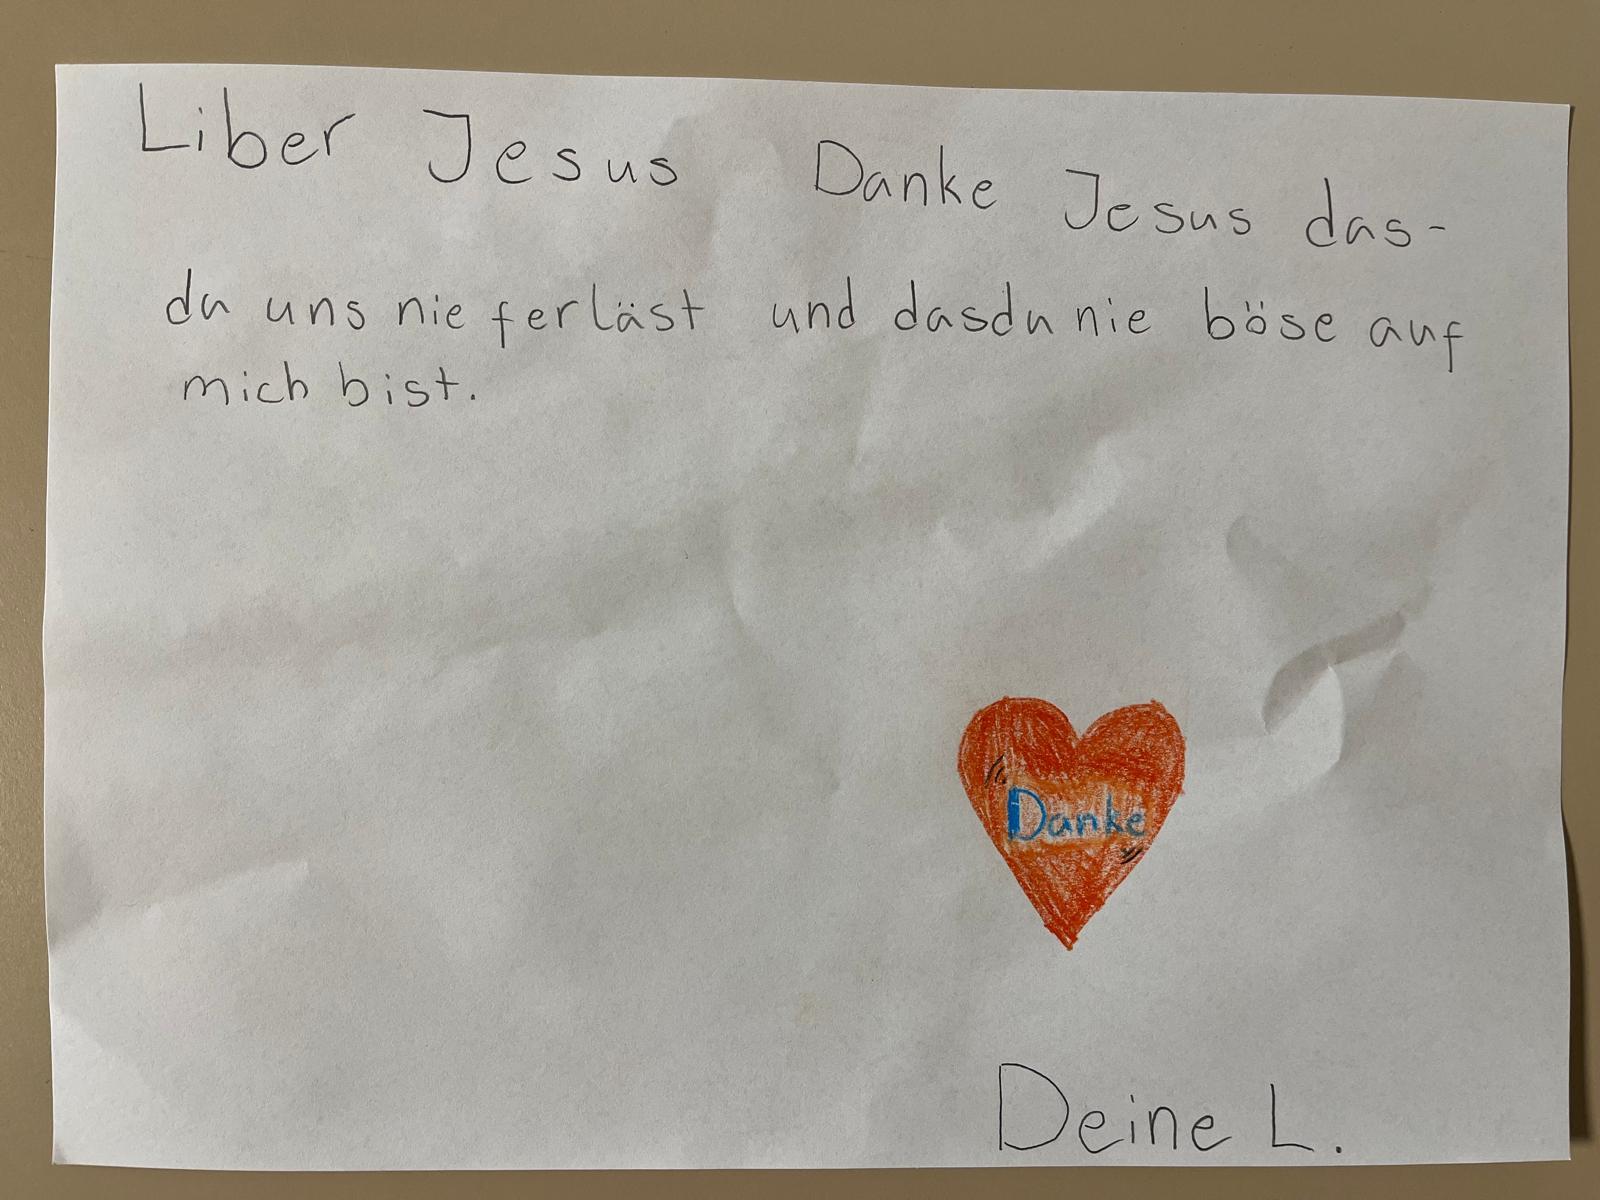 Liber Jesus Danke Jesus das-
du uns nie ferläst und dasdu nie böse auf
mich bist.
Danke
Deine L.